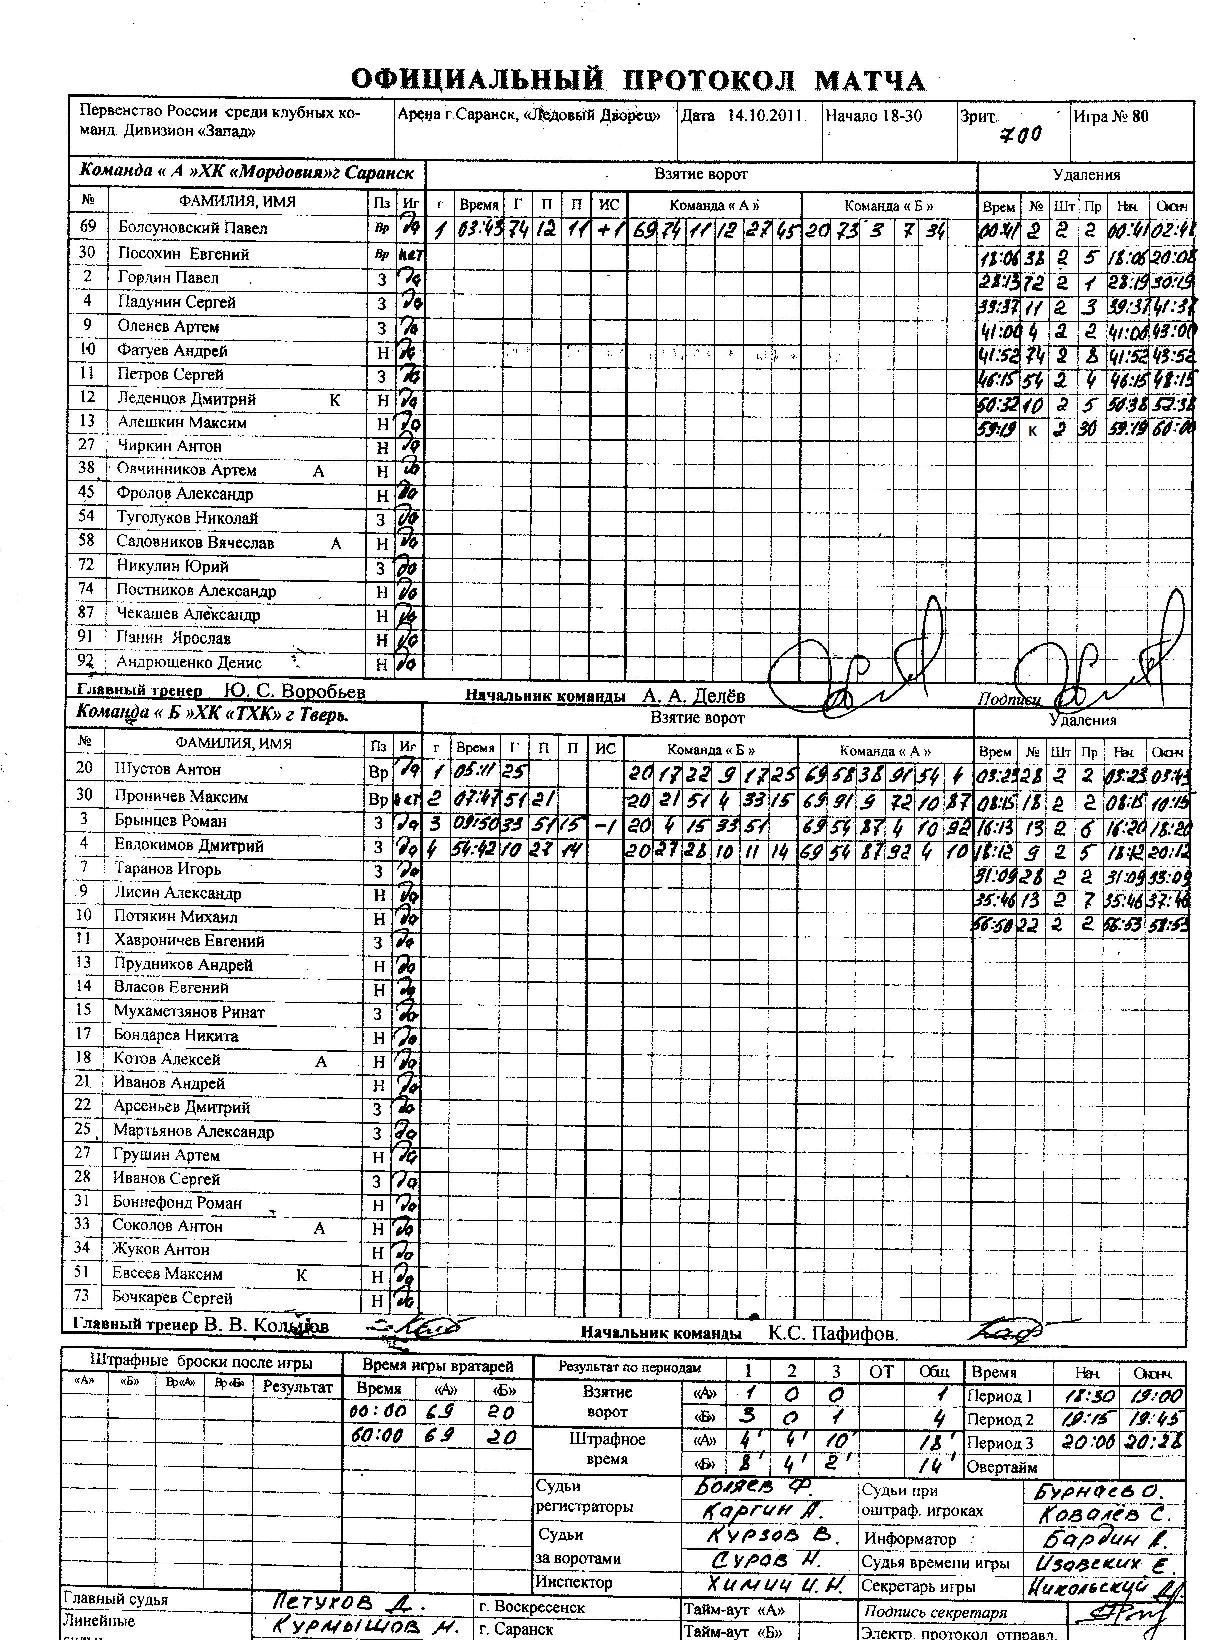 ОФИЦИАЛЬНЫЙ ПРОТОКОЛ МАТЧА
Первенство России среди клубных ко- Арена г.Саранск, «Ледовый Дворец» Дата 14.10.2011. Начало 18-30 Зрит. 700 Игра № 80
манд. Дивизион «Запад»
Команда « А »ХК «Мордовия»г Саранск Взятие ворот Удаления
№ ФАМИЛИЯ, ИМЯ Пз Иг г Время Г П П ИС Команда « А » Команда « Б » Врем № Шт Пр Нач. Оконч
69 Болсуновский Павел Вр да 1 03:43 74 12 11 +1 69 74 11 12 27 45 20 73 3 7 34 00:41 2 2 2 00:41 02:41
30 Посохин Евгений Вр нет 18:06 38 2 5 18:06 20:06
2 Гордин Павел З да 28:13 72 2 1 28:19 30:19
4 Падунин Сергей З да 39:37 11 2 3 39:37 41:37
9 Оленев Артем З да 41:00 4 2 2 41:00 43:00
10 Фатуев Андрей Н да 41:52 74 2 8 41:52 43:52
11 Петров Сергей З да 46:15 54 2 4 46:15 48:15
12 Леденцов Дмитрий К Н да 50:32 10 2 5 50:38 52:38
13 Алешкин Максим Н да 59:19 К 2 30 59:19 60:00
27 Чиркин Антон Н да
38 Овчинников Артем А Н да
45 Фролов Александр Н да
54 Туголуков Николай З да
58 Садовников Вячеслав А Н да
72 Никулин Юрий З да
74 Постников Александр Н да
87 Чекашев Александр Н да
91 Панин Ярослав Н да
92 Андрющенко Денис Н да
Главный тренер Ю. С. Воробьев Начальник команды А. А. Делёв Подписи
Команда « Б »ХК «ТХК» г Тверь. Взятие ворот Удаления
№ ФАМИЛИЯ, ИМЯ Пз Иг г Время Г П П ИС Команда « Б » Команда « А » Врем № Шт Пр Нач. Оконч
20 Шустов Антон Вр да 1 05:11 25 20 17 22 9 17 25 69 58 38 91 54 4 03:23 28 2 2 03:23 03:43
30 Проничев Максим Вр нет 2 07:47 51 21 20 21 51 4 33 15 69 91 9 72 10 87 08:15 18 2 2 08:15 10:15
3 Брынцев Роман З да 3 09:50 33 51 15 -1 20 4 15 33 51 69 54 87 4 10 92 16:13 13 2 6 16:20 18:20
4 Евдокимов Дмитрий З да 4 54:42 10 27 14 20 27 28 10 11 14 69 54 87 92 4 10 18:12 9 2 5 18:12 20:12
7 Таранов Игорь З да 31:09 28 2 2 31:09 33:09
9 Лисин Александр Н да 35:46 13 2 7 35:46 37:46
10 Потякин Михаил Н да 56:50 22 2 2 56:53 58:53
11 Хавроничев Евгений З да
13 Прудников Андрей Н да
14 Власов Евгений Н да
15 Мухаметзянов Ринат З да
17 Бондарев Никита Н да
18 Котов Алексей А Н да
21 Иванов Андрей Н да
22 Арсеньев Дмитрий З да
25 Мартьянов Александр З да
27 Грушин Артем Н да
28 Иванов Сергей З да
31 Боннефонд Роман Н да
33 Соколов Антон А Н да
34 Жуков Антон Н да
51 Евсеев Максим К Н да
73 Бочкарев Сергей Н да
Главный тренер В. В. Кольцов Начальник команды К.С. Пафифов.
Штрафные броски после игры Время игры вратарей Результат по периодам 1 2 3 ОТ Общ Время Нач. Оконч.
«А» «Б» Вр«А» Вр«Б» Результат Время «А» «Б» Взятие ворот «А» 1 0 0 1 Период 1 18:30 19:00
00:00 69 20 «Б» 3 0 1 4 Период 2 19:15 19:45
60:00 69 20 Штрафное время «А» 4' 4' 10' 18' Период 3 20:00 20:28
«Б» 8' 4' 2' 14' Овертайм
Судьи регистраторы Боляев Ф. Судьи при оштраф. игроках Бурнаев О.
Каргин А. Ковалёв С.
Судьи за воротами Курзов В. Информатор Бардин
Суров Н. Судья времени игры Изовских Е.
Инспектор Химич И. Н. Секретарь игры Никольский
Главный судья Петухов Д. г. Воскресенск Тайм-аут «А» Подпись секретаря
Линейные Курмышов Н. г. Саранск Тайм-аут «Б» Электр. протокол отправл.